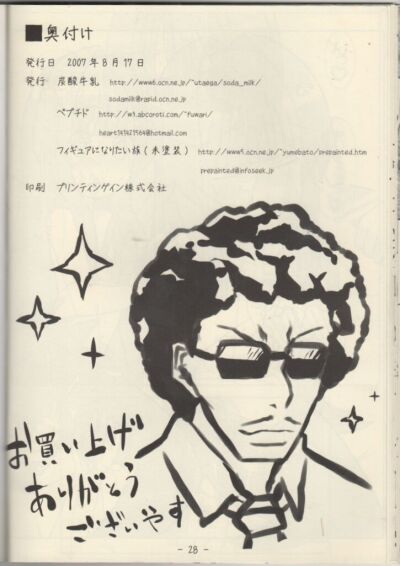 ■奥付け
発行日 2007年8月17日
発行 炭酸牛乳 http://www6.ocn.ne.jp/~utaega/soda_milk/
sodamilk@rapid.ocn.ne.jp
ペプチド http://w3.abcoroti.com/~fuwari/
heart141421564@hotmail.com
フィギュアになりたい族(未塗装) http://www9.ocn.ne.jp/~yumebato/prepainted.htm
prepainted@infoseek.jp
印刷 プリンティングイン株式会社
お買い上げ
ありがとう
ございやす
- 28 -